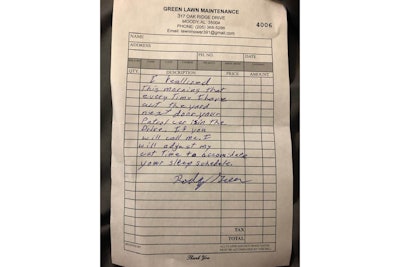 GREEN LAWN MAINTENANCE
317 OAK RIDGE DRIVE
MOODY, AL 35004
PHONE: (205) 365-5286
Email: lawnmower391@gmail.com
4006
NAME
ADDRESS
PH. NO. DATE
QTY. DESCRIPTION PRICE AMOUNT
I reallized
this morning that
every time I have
cut the yard
next door your
Patrol car is in the
Drive. If you
will call me. I
will adjust my
cut time to accomodate
your sleep schedule.
Rody Green
TAX
TOTAL
Thank You